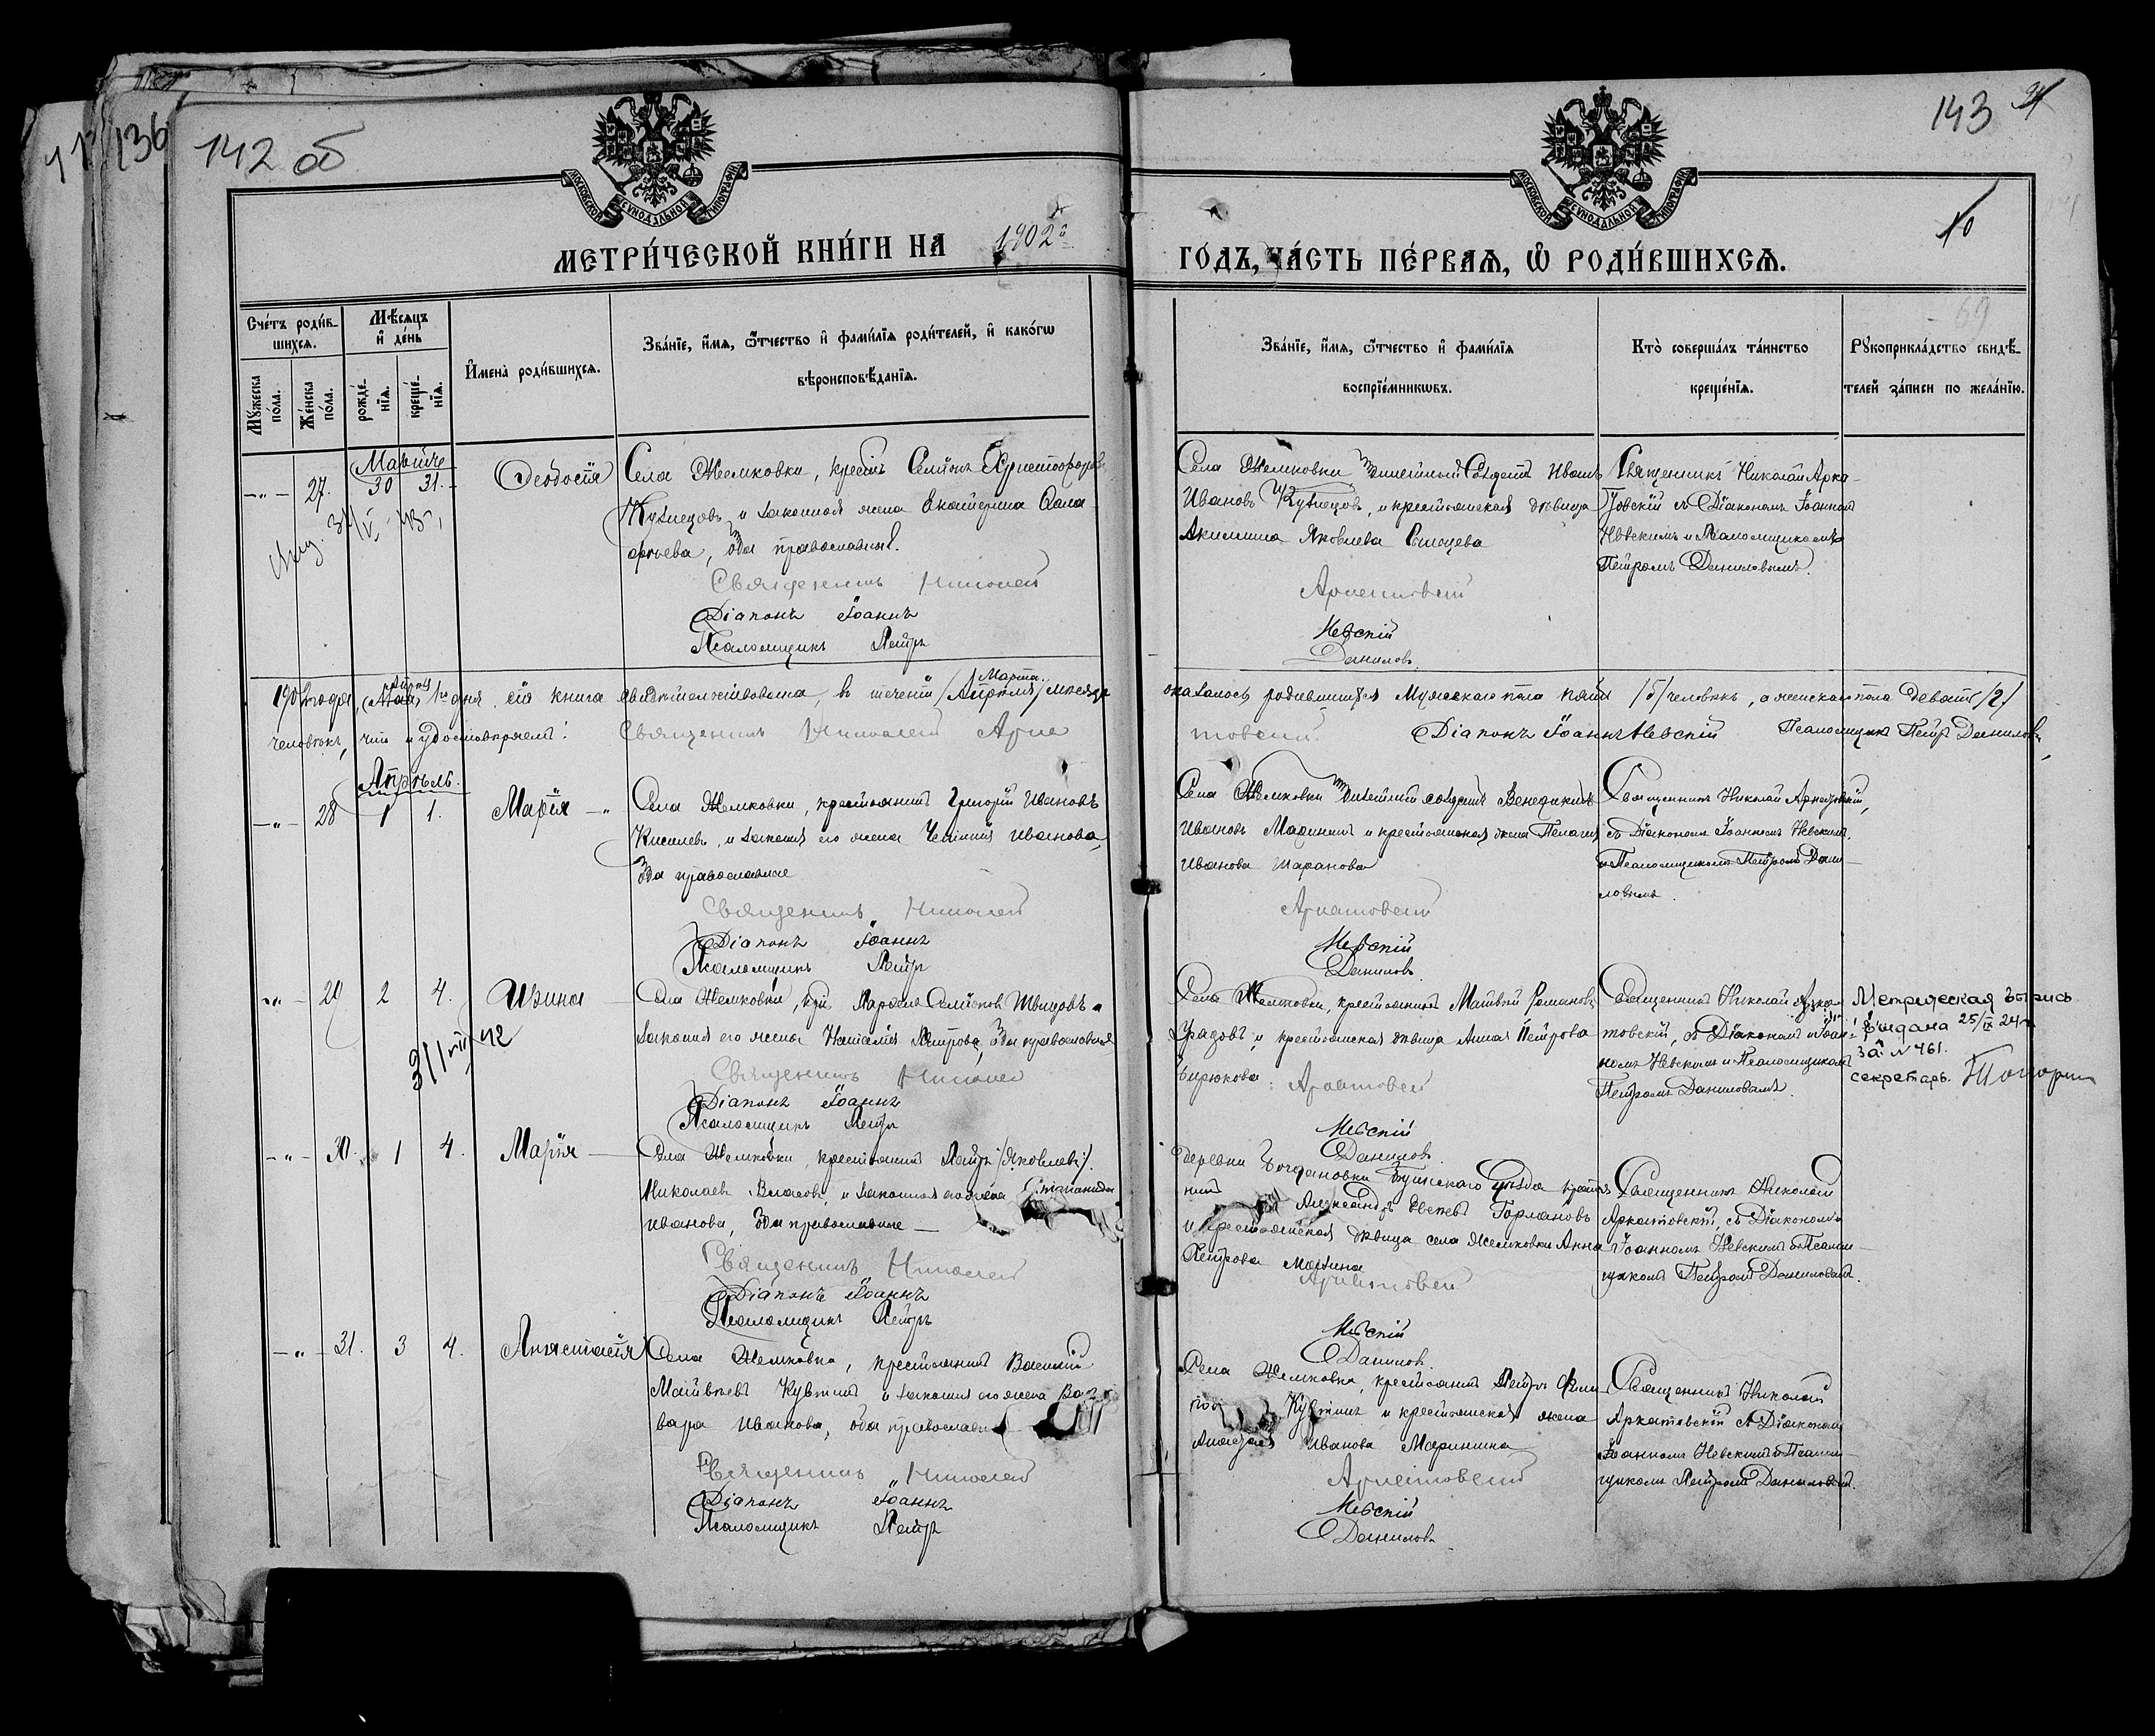 142 об
136
143
МОСКОВСКОЙ СѴНОДАЛЬНОЙ ТИПОГРАФІИ
МОСКОВСКОЙ СѴНОДАЛЬНОЙ ТИПОГРАФІИ
10
МЕТРИ́ЧЕСКОЙ КНИ́ГИ НА 1902й ГОДЪ, ЧА́СТЬ ПЕ́РВАѦ, Ѡ҆ РОДИ́ВШИХСѦ.
69
Сче́тъ роди́в-
шихсѧ.
Мѣ́сѧцъ
и҆ де́нь
Мꙋ́жеска
по́ла.
Же́нска
по́ла.
рожде́-
нїѧ.
креще́-
нїѧ.
И҆мена̀ роди́вшихсѧ.
Зва́нїе, и҆́мѧ, ѻ҆́тчество и҆ фамі́лїѧ роди́телей, и҆ како́гѡ
вѣроисповѣ́данїѧ.
Зва́нїе, и҆́мѧ, ѻ҆́тчество и҆ фамі́лїѧ
воспрїе́мникѡвъ.
Кто̀ соверша́лъ та́инство
креще́нїѧ.
Рꙋкоприкла́дство свидѣ́-
телей за́писи по жела́нїю.
Мартъ
-„- 27. 30 31.
Ѳеодосія
Села Жемковки, крест. Семіонъ Христофоровъ
Кузнецовъ, и законная жена Екатерина
оба православные.
Священникъ Николай
Діаконъ Іоаннъ
Псаломщикъ Петръ
Села Жемковки солдатъ Иванъ
Ивановъ Кузнецовъ, и крестьянская дѣвица
Акилина Яковлева
Аркатовскій
Невскій
Даниловъ
Священникъ Николай Арка-
товскій съ Діакономъ Іоанномъ
Невскимъ и Псаломщикомъ
Петромъ Даниловымъ.
Марта
1902 года, Апрѣля 1го дня, сія книга свидѣтельствована, въ теченіи /Апрѣля/ мѣсяца оказалось родившихся мужескаго пола пять /5/ человѣкъ, а женскаго пола девять /9/
человѣкъ, что и удостовѣряемъ: Священникъ Николай Аркатовскій Діаконъ Іоаннъ Невскій Псаломщикъ Петръ Даниловъ
Апрѣль.
-„- 28 1 1.
Марія
Села Жемковки, крестьянинъ Григорій Ивановъ
Киселевъ, и законная его жена Иванова,
оба православные
Священникъ Николай
Діаконъ Іоаннъ
Псаломщикъ Петръ
Села Жемковки солдатъ Венедиктъ
Ивановъ Марининъ и крестьянская жена Пелагія
Иванова Шаранова
Аркатовскій
Невскій
Даниловъ
Священникъ Николай Аркатовскій,
съ Діакономъ Іоанномъ Невскимъ.
и Псаломщикомъ Петромъ Дани-
ловымъ.
-„- 29 2 4.
Ирина
Села Жемковки, кр. Семіоновъ Швецовъ и
законная его жена Наталія Петрова, оба православные
Священникъ Николай
Діаконъ Іоаннъ
Псаломщикъ Петръ
Села Жемковки, крестьянинъ Матвѣй Романовъ
Градовъ и крестьянская дѣвица Анна Петрова
Бирюкова:
Аркатовскій
Невскій
Даниловъ
Священникъ Николай Арка-
товскій, съ Діакономъ Іоан-
номъ Невскимъ и Псаломщикомъ
Петромъ Даниловымъ.
Метрическая выпись
выдана 25/IX 24 г.
за № 461.
секретарь.
31/VIII 42
-„- 30. 1 4.
Марія
Села Жемковки, крестьянинъ Петръ /Яковлевъ/.
Николаевъ Власовъ и законная его жена Степанида
Иванова, оба православные
Священникъ Николай
Діаконъ Іоаннъ
Псаломщикъ Петръ
Деревни Богдановки Буинскаго уѣзда крестья
нинъ Александръ Горлановъ
и крестьянская дѣвица села Жемковки Анна
Петрова
Аркатовскій
Невскій
Даниловъ.
Священникъ Николай
Аркатовскій, съ Діакономъ
Іоанномъ Невскимъ и Псалом-
щикомъ Петромъ Даниловымъ.
-„- 31. 3 4.
Анастасія
Села Жемковки, крестьянинъ Василій
Матвѣевъ и законная его жена Вар
вара Иванова, оба православные
Священникъ Николай
Діаконъ Іоаннъ
Псаломщикъ Петръ
Села Жемковки, крестьянинъ Петръ
и крестьянская жена
Иванова Маринина
Аркатовскій
Невскій
Даниловъ.
Священникъ Николай
Аркатовскій съ Діакономъ
Іоанномъ Невскимъ и Псалом-
щикомъ Петромъ Даниловымъ.